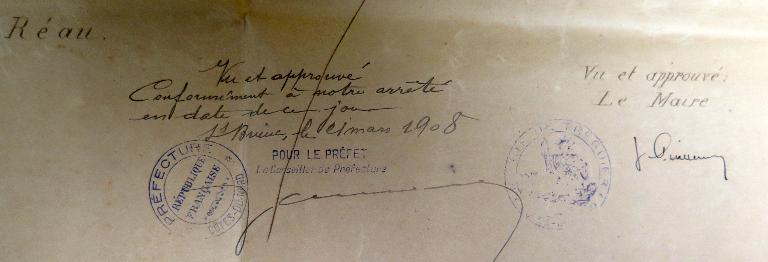 Réau.
Vu et approuvé
Conformément à notre arrêté
en date de ce jour
St Brieuc, le 21 mars 1908
POUR LE PRÉFET
Le Conseiller de Préfecture
PRÉFECTURE
RÉPUBLIQUE
FRANÇAISE
CÔTES-DU-NORD
Vu et approuvé:
Le Maire
TREGUIER